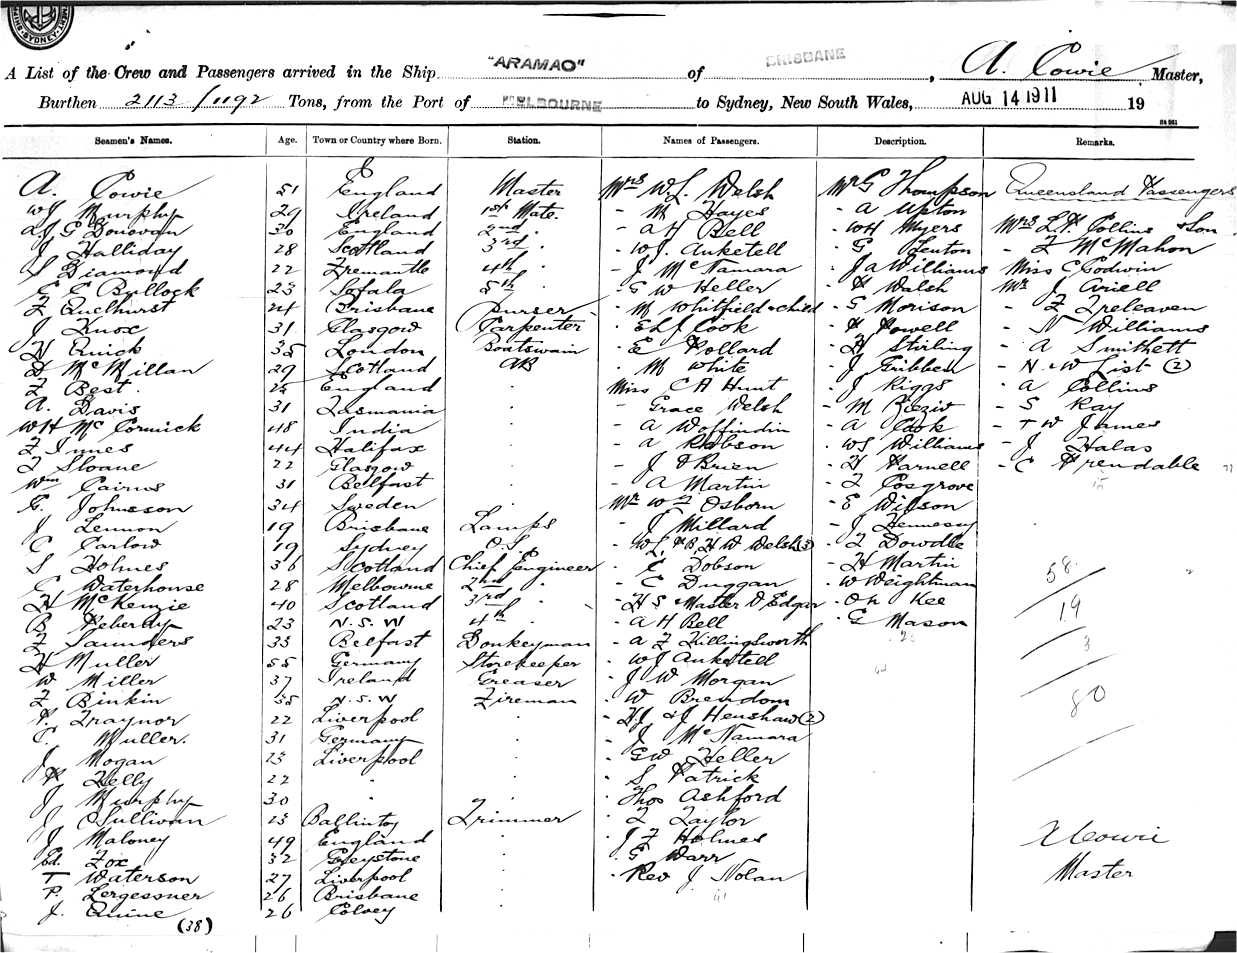 SYDNEY
A List of the Crew and Passengers arrived in the Ship "ARAMAO" of BRISBANE, A. Cowie Master,
Burthen 2113/1192 Tons, from the Port of MELBOURNE to Sydney, New South Wales, AUG 14 1911 19
Seamen's Names. Age. Town or Country where Born. Station. Names of Passengers. Description. Remarks.
A. Cowie 51 England Master Mrs W. J. Welsh Mr G Thompson Queensland Passengers
WJ Murphy 29 Ireland 1st Mate. - M Hayes - A Upton
G Donovan 30 England 2nd - A H Bell - WH Myers Mrs L H Collins Son
J Halliday 28 Scotland 3rd - WJ. Anketell - G Fenton - F McMahon
S Diamond 22 Fremantle 4th - J McNamara - J A Williams Miss C Godwin
C E Bullock 23 Sofala 5th - G W Heller - H Walsh Mr J Ariell
F Quelhurst 24 Brisbane Purser - M Whitfield & child - G Morison - F Treleaven
J Knox 31 Glasgow Carpenter - E L J Cook - H Powell - N Williams
H Quick 35 London Boatswain - E Pollard - H Stirling - A Smithett
D McMillan 29 Scotland AB - M White - J Gribben - N & W List (2)
F Best England Miss C A Hunt - J Riggs - A Collins
A. Davis 31 Tasmania - Grace Welsh - M - S Ray
WH McCormick 48 India - A Woffindin - A Cook - T W James
F Innes 44 Halifax - A Robson - WS Williams - J Halas
F Sloane 22 Glasgow - J O'Brien - H Parnell - C Prendable
Wm Cairns 31 Belfast - A Martin - F Cosgrove
G. Johnsson 34 Sweden Mr W F Osborn - E Wilson
J Lennon 19 Brisbane Lamps - J Millard - J Hennessy
C Carlow 19 Sydney O.S. - W L, & B, H W Welsh (3) - F Dowdle
S Holmes 36 Scotland Chief Engineer - E Dobson - H Martin
C Waterhouse 28 Melbourne 2nd - C Duggan - W Weightman 58
H McKenzie 40 Scotland 3rd - H S Master D Edgar - Oh Kee
B Peberdy 23 N.S.W 4th - A H Bell - G Mason 19
F Saunders 33 Belfast Donkeyman - A F Killingsworth 3
H Muller 55 Germany Storekeeper - WJ Anketell
W Miller 37 Ireland Greaser - J W Morgan
F Binkin 35 N.S.W Fireman - W Brendom 80
P. Traynor 22 Liverpool - HJ & J Henshaw (2)
C. Muller. 31 Germany - J McNamara
J Hogan 23 Liverpool - GW Heller
P Kelly 22 " - S Patrick
J Murphy 30 " - Thos Ashford
J O'Sullivan Ballintoy Trimmer - F Taylor
J Maloney 49 England - J F Holmes A Cowie
Ed. Fox 32 Greystone - G Warr
T Waterson 27 Liverpool - Rev J Nolan Master
P. Lergessner 26 Brisbane
J. Quine 26 Colvey
(38)